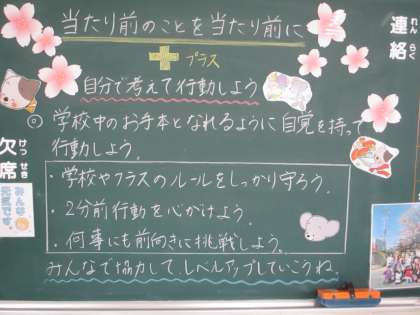 当たり前のことを当たり前に
プラス
自分で考えて行動しよう
◎学校中のお手本となれるように自覚を持って
行動しよう。
・学校やクラスのルールをしっかり守ろう。
・2分前行動を心がけよう。
・何事にも前向きに挑戦しよう。
みんなで協力して、レベルアップしていこうね。
連絡
れんらく
欠席
けっせき
みんな
元気です。